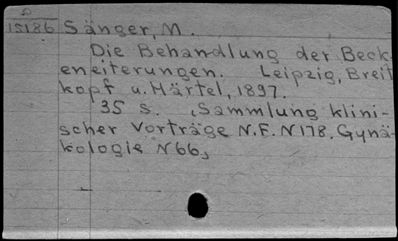 15186 Sänger, M.
Die Behandlung der Beck-
eneiterungen. Leipzig, Breit
kopf u. Härtel, 1897.
35 s. (Sammlung klini-
scher Vorträge N.F. N178. Gynä-
kologie N66)